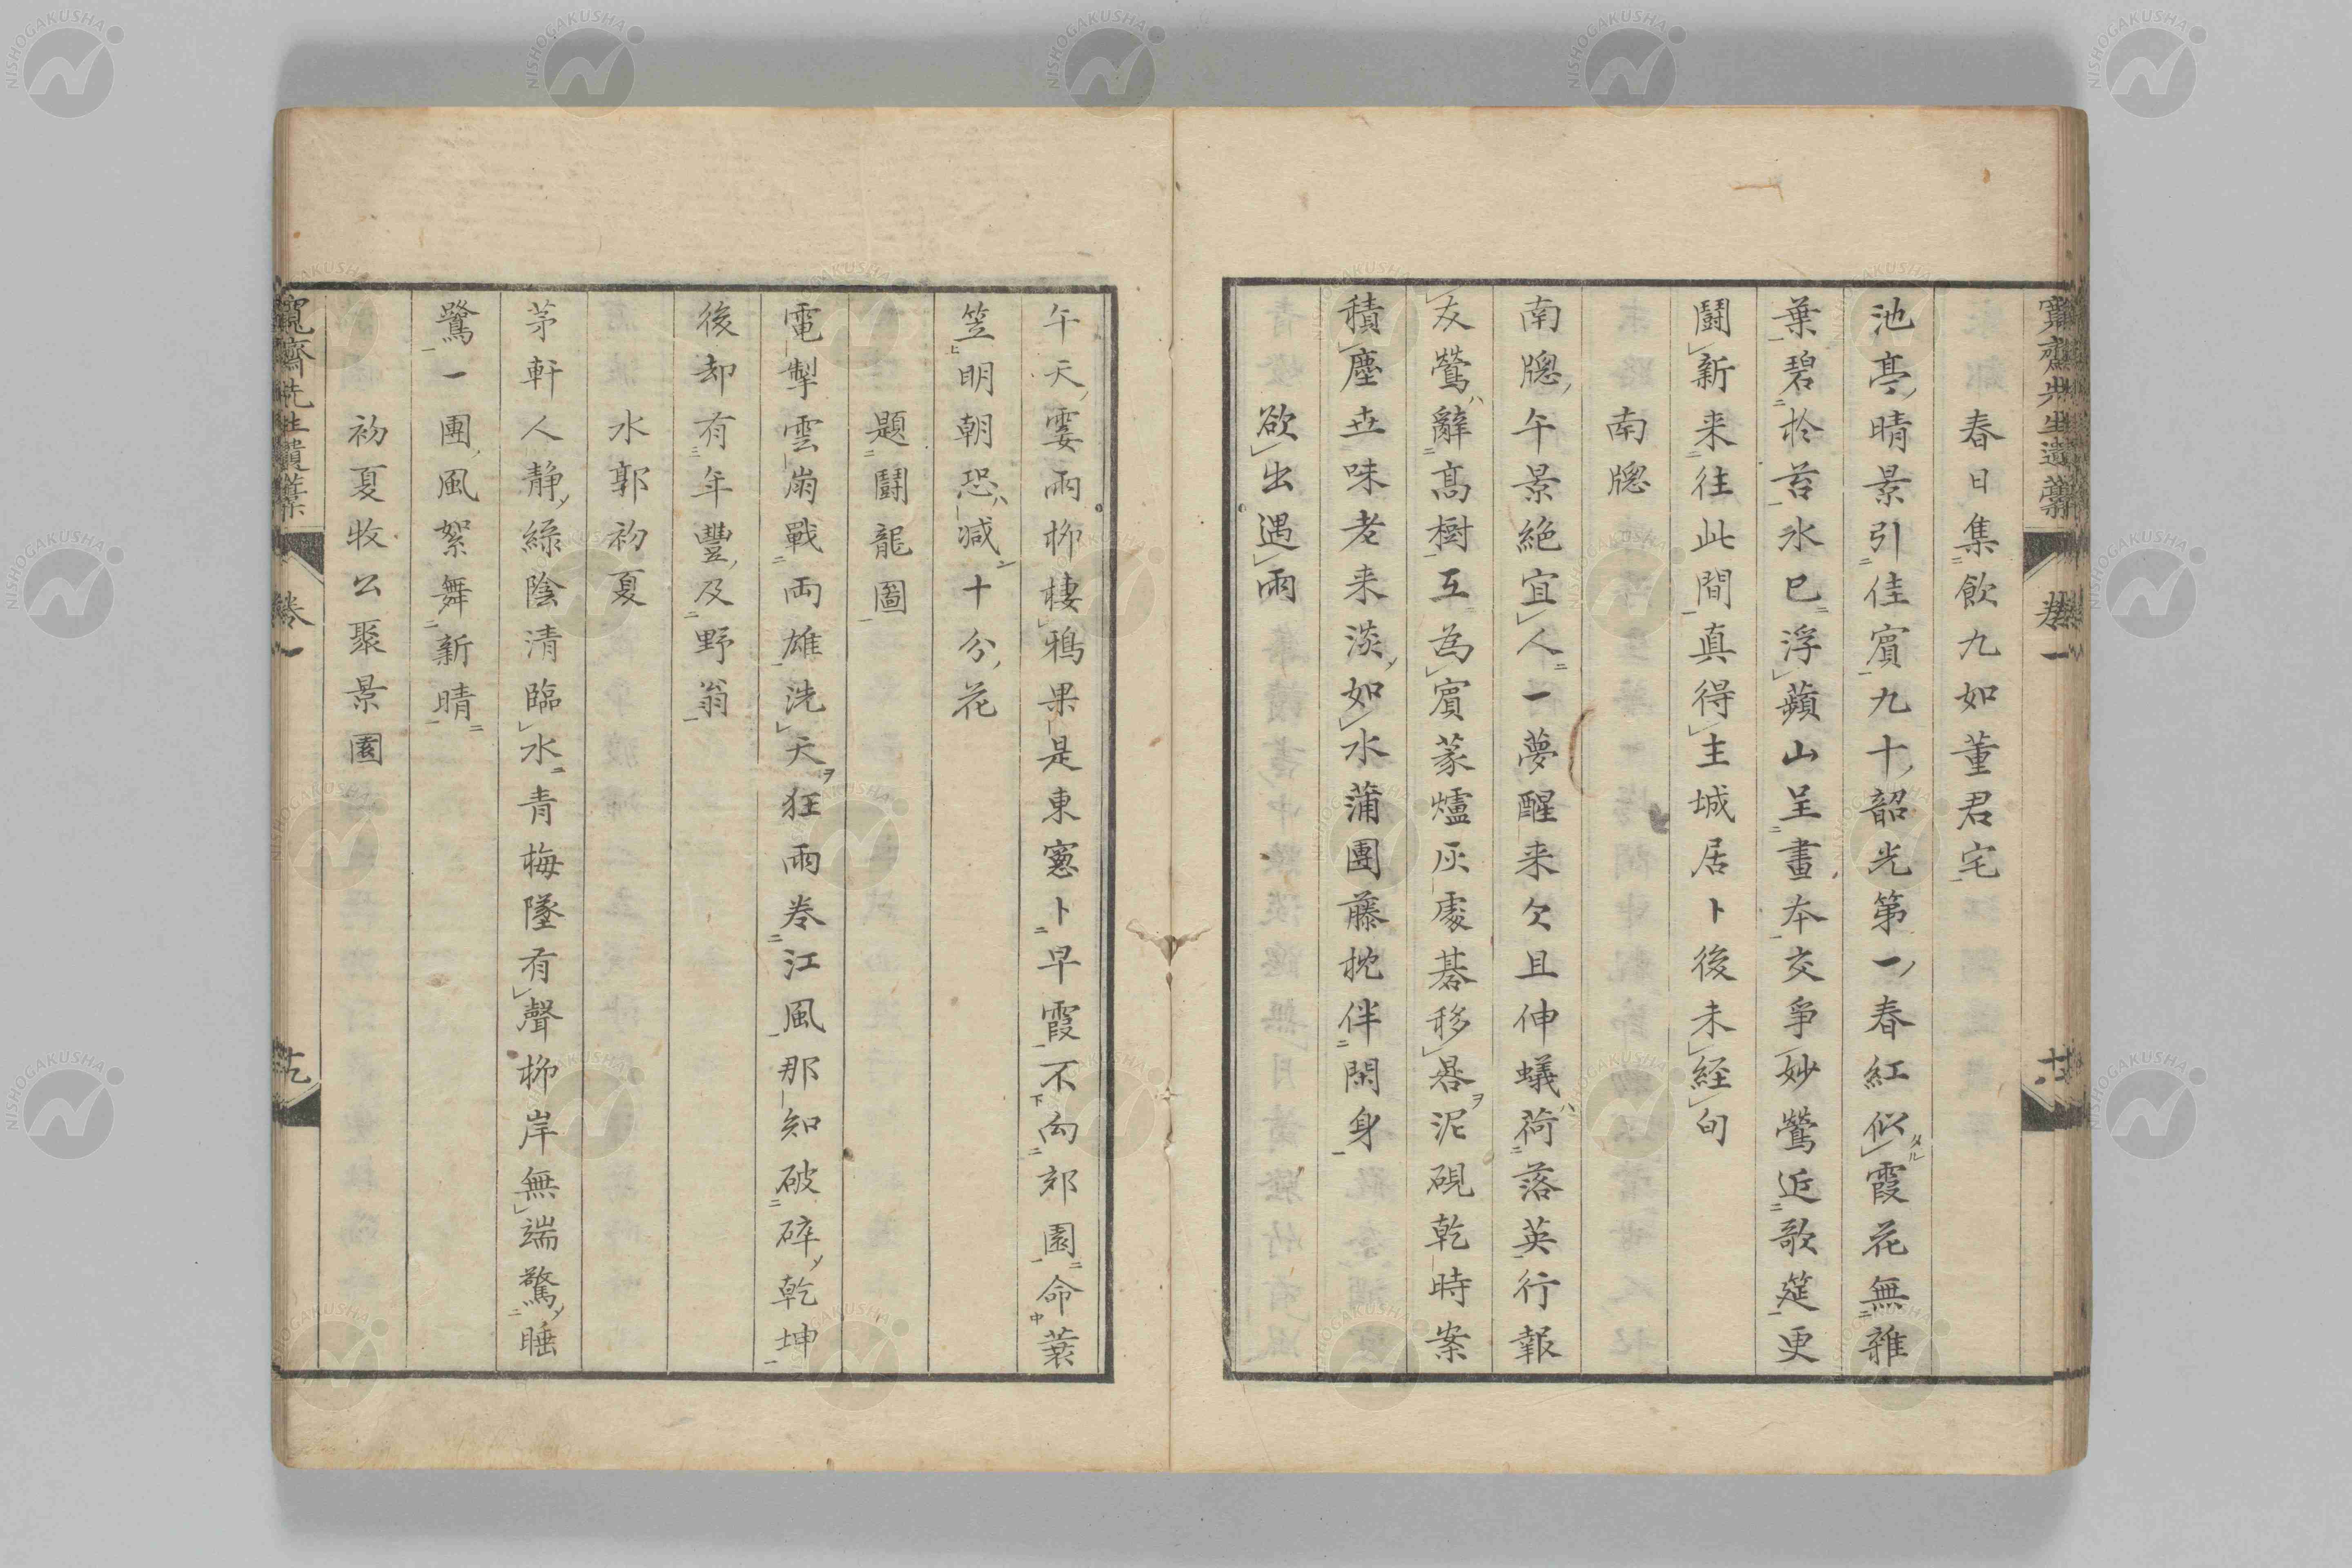 春日集飲九如董君宅
池亭晴景引佳賓九十韶光第一春紅似霞花無雜
葉碧於苔水已浮蘋山呈畫本交爭妙鶯近歌筵更
鬪新来往此間真得主城居卜後未経旬
南牕
南牕午景絶宜人一夢醒来欠且伸蟻荷落英行報
友鶯辭高樹互為賓篆爐灰處碁移晷泥硯乾時案
積塵世味老来淡如水蒲團藤枕伴閑身
欲出遇雨
午天霎雨栁棲鴉果是東窻卜早霞不向郊園命蓑
笠明朝恐減十分花
題鬪龍圖
電掣雲崩戰両雄洗天狂雨巻江風那知破碎乾坤
後却有年豐及野翁
水郭初夏
茅軒人静緑陰清臨水青梅墜有聲栁岸無端驚睡
鷺一團風絮舞新晴
初夏牧公聚景園
寛齋先生遺藁
巻一
NISHOGAKUSHA